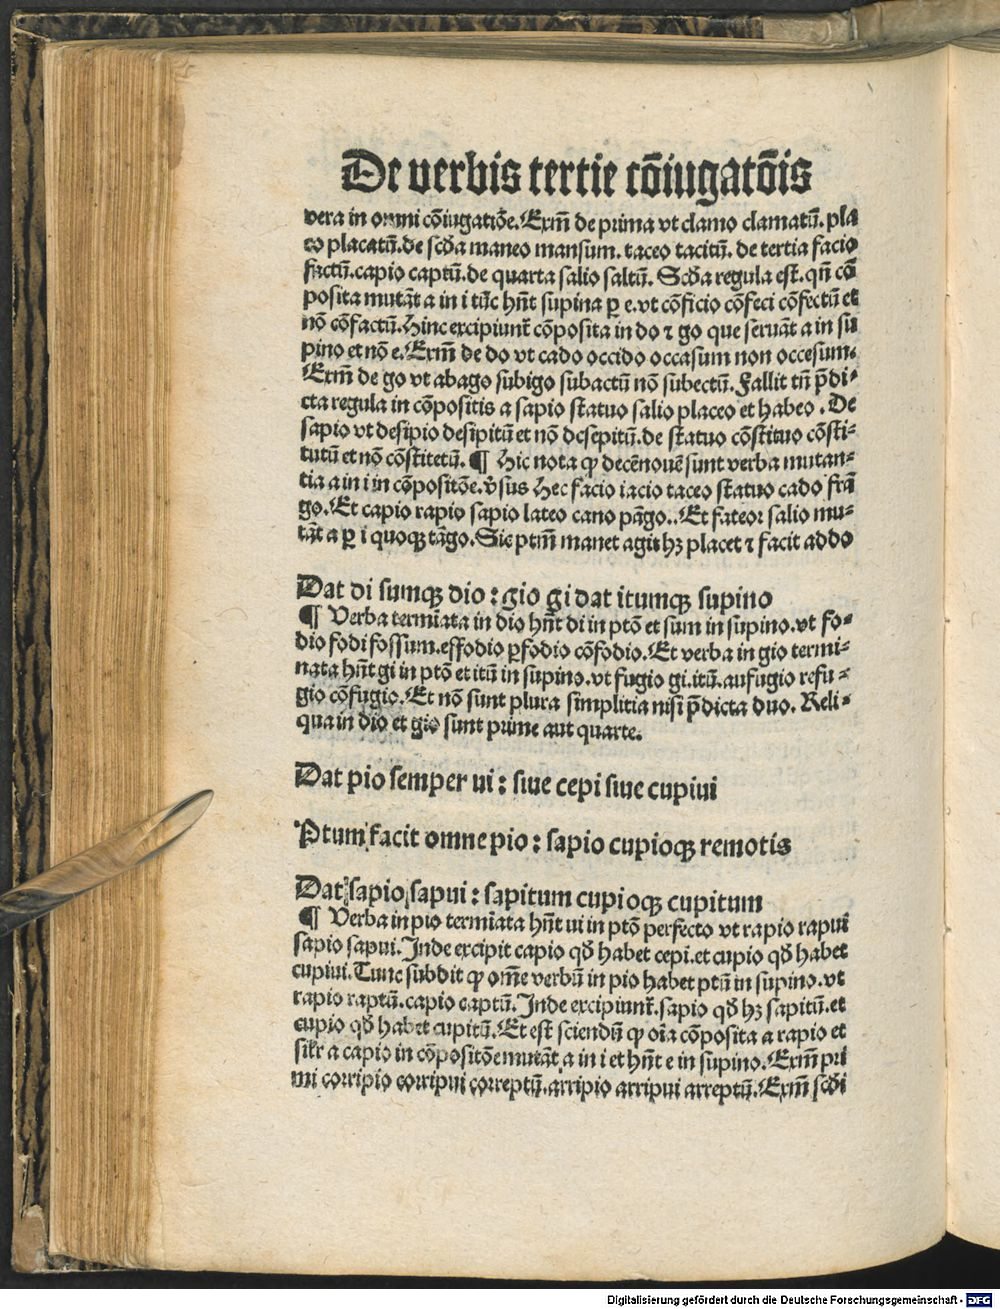 De verbis tertie cōiugatōis
vera in omni cōiugatiōe. Exm̄ de prima vt clamo clamatū. pla
co placatū. de scd̄a maneo mansum. taceo tacitū. de tertia facio
factū. capio captū. de quarta salio saltū. Scd̄a regula est. qn̄ cō
posita mutāt a in i tūc hn̄t supina ꝑ e. vt cōficio cōfeci cōfectū et
nō cōfactū. Hinc excipiunt᷑ cōposita in do ⁊ go que seruāt a in su
pino et nō e. Exm̄ de do vt cado occido occasum non occesum.
Exm̄ de go vt abago subigo subactū nō subectū. Fallit tn̄ p̄di⸗
cta regula in cōpositis a sapio statuo salio placeo et habeo. De
sapio vt desipio desipitū et nō desepitū. de statuo cōstituo cōsti⸗
tutū et nō cōstitetū. ¶ Hic nota ꝙ decēnouē sunt verba mutan⸗
tia a in i in cōpositōe. v̄sus Hec facio iacio taceo statuo cado frā
go. Et capio rapio sapio lateo cano pāgo.. Et fateor salio mu⸗
tāt a ꝑ i quoqꝫ tāgo. Sic ptm̄ manet agit hꝫ placet ⁊ facit addo
Dat di sumqꝫ dio : gio gi dat itumqꝫ supino
¶ Verba termīata in dio hn̄t di in ptō et sum in supino. vt fo⸗
dio fodi fossum. effodio ꝑfodio cōfodio. Et verba in gio termi⸗
nata hn̄t gi in ptō et itū in supino. vt fugio gi. itū. aufugio refu⸗
gio cōfugio. Et nō sunt plura simplitia nisi p̄dicta duo. Reli⸗
qua in dio et gio sunt prime aut quarte.
Dat pio semper ui : siue cepi siue cupiui
Ptum facit omne pio : sapio cupioqꝫ remotis
Dat sapio sapui : sapitum cupioqꝫ cupitum
¶ Verba in pio termīata hn̄t ui in ptō perfecto vt rapio rapui
sapio sapui. Inde excipit capio qd̄ habet cepi. et cupio qd̄ habet
cupiui. Tunc subdit ꝙ om̄e verbū in pio habet ptū in supino. vt
rapio raptū. capio captū. Inde excipiunt᷑. sapio qd̄ hꝫ sapitū. et
cupio qd̄ habet cupitū. Et est sciendū ꝙ oīa cōposita a rapio et
sikr a capio in cōpositōe mutāt a in i et hn̄t e in supino. Exm̄ pri
mi corripio corripui correptū. arripio arripui arreptū. Exm̄ scd̄i
Digitalisierung gefördert durch die Deutsche Forschungsgemeinschaft - DFG